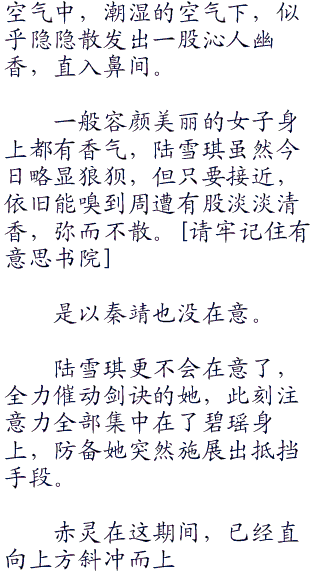 空气中，潮湿的空气下，似
乎隐隐散发出一股沁人幽
香，直入鼻间。
一般容颜美丽的女子身
上都有香气，陆雪琪虽然今
日略显狼狈，但只要接近，
依旧能嗅到周遭有股淡淡清
香，弥而不散。[请牢记住有
意思书院]
是以秦靖也没在意。
陆雪琪更不会在意了，
全力催动剑诀的她，此刻注
意力全部集中在了碧瑶身
上，防备她突然施展出抵挡
手段。
赤灵在这期间，已经直
向上方斜冲而上